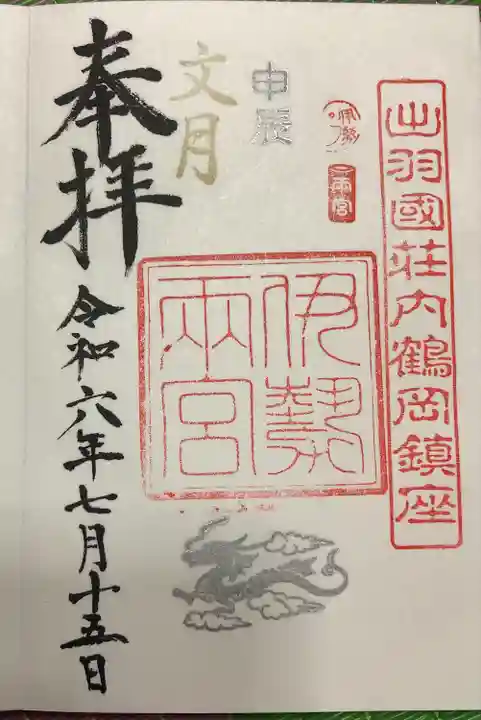 出羽國荘内鶴岡鎮座
伊勢
兩宮
甲辰
伊勢
兩宮
文月
奉拝
令和六年七月十五日